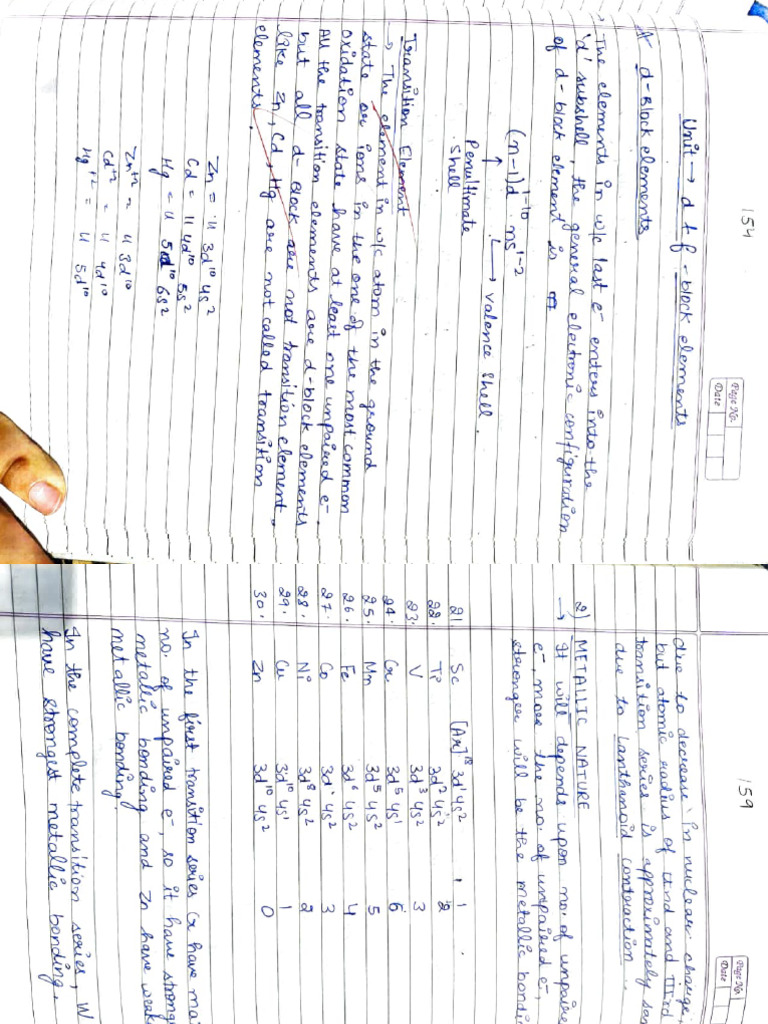 154
Page No.
Date
Unit → d & f - block elements
* d-Block elements
→ The elements in w/c last e⁻ enters into the
'd' subshell, the general electronic configuration
of d-block element is
(n-1)d¹⁻¹⁰ ns¹⁻²
Penultimate shell
valence shell.
Transition Element
→ The element in w/c atom in the ground
state or ions in the one of the most common
oxidation state have at least one unpaired e⁻.
All the transition elements are d-block elements
but all d-Block are not transition element.
like Zn, Cd, Hg are not called transition
elements.
Zn = 11 3d¹⁰ 4s²
Cd = 11 4d¹⁰ 5s²
Hg = 11 5d¹⁰ 6s²
Zn⁺² = 11 3d¹⁰
Cd⁺² = 11 4d¹⁰
Hg⁺² = 11 5d¹⁰
159
Page No.
Date
due to decrease in nuclear change,
but atomic radius of IInd and IIIrd
transition series is approximately
due to Lanthanoid contraction
2) METALLIC NATURE
→ It will depends upon no. of
e⁻, more the no. of unpaired e⁻,
stronger will be the metallic
21 Sc [Ar]¹⁸ 3d¹ 4s² 1
22. Ti 3d² 4s² 2
23. V 3d³ 4s² 3
24. Cr 3d⁵ 4s¹ 6
25. Mn 3d⁵ 4s² 5
26. Fe 3d⁶ 4s² 4
27. Co 3d⁷ 4s² 3
28. Ni 3d⁸ 4s² 2
29. Cu 3d¹⁰ 4s¹ 1
30. Zn 3d¹⁰ 4s² 0
In the first transition series Cr have
no. of unpaired e⁻, so it have
metallic bonding and Zn have
metallic bonding.
In the complete transition series, W
have strongest metallic bonding.